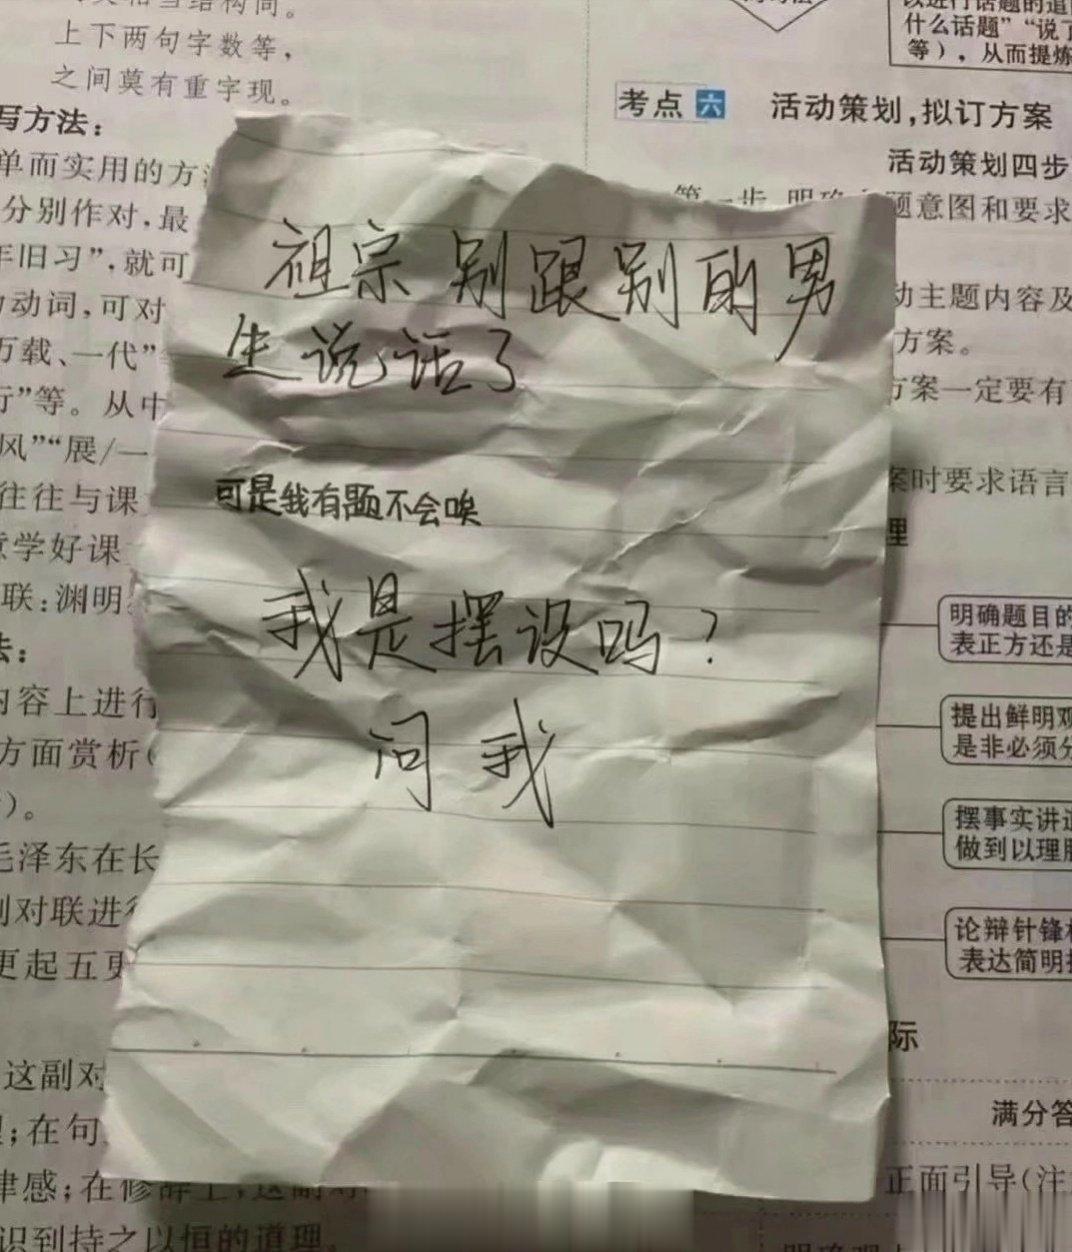 上下两句字数等，
之间莫有重字现。
写方法：
单而实用的方
分别作对，最
年旧习”，就可
动词，可对
万载、一代”
行”等。从中
风”“展/一
往往与课
意学好课
联：渊明
法：
内容上进行
方面赏析（
）。
毛泽东在长
副对联进行
更起五更
这副对
；在句
律感；在修辞上，这副对
识到持之以恒的道理。
祖宗 别跟别的男
生说话了
可是我有题不会唉
我是摆设吗？
问我
什么话题”“说了
等），从而提炼
考点 六 活动策划，拟订方案
活动策划四步
第一步 明确主题意图和要求
动主题内容及
方案。
方案一定要有
案时要求语言
理
明确题目的
表正方还是
提出鲜明观
是非必须分
摆事实讲道
做到以理服
论辩针锋相
表达简明扼
际
满分答
正面引导（注